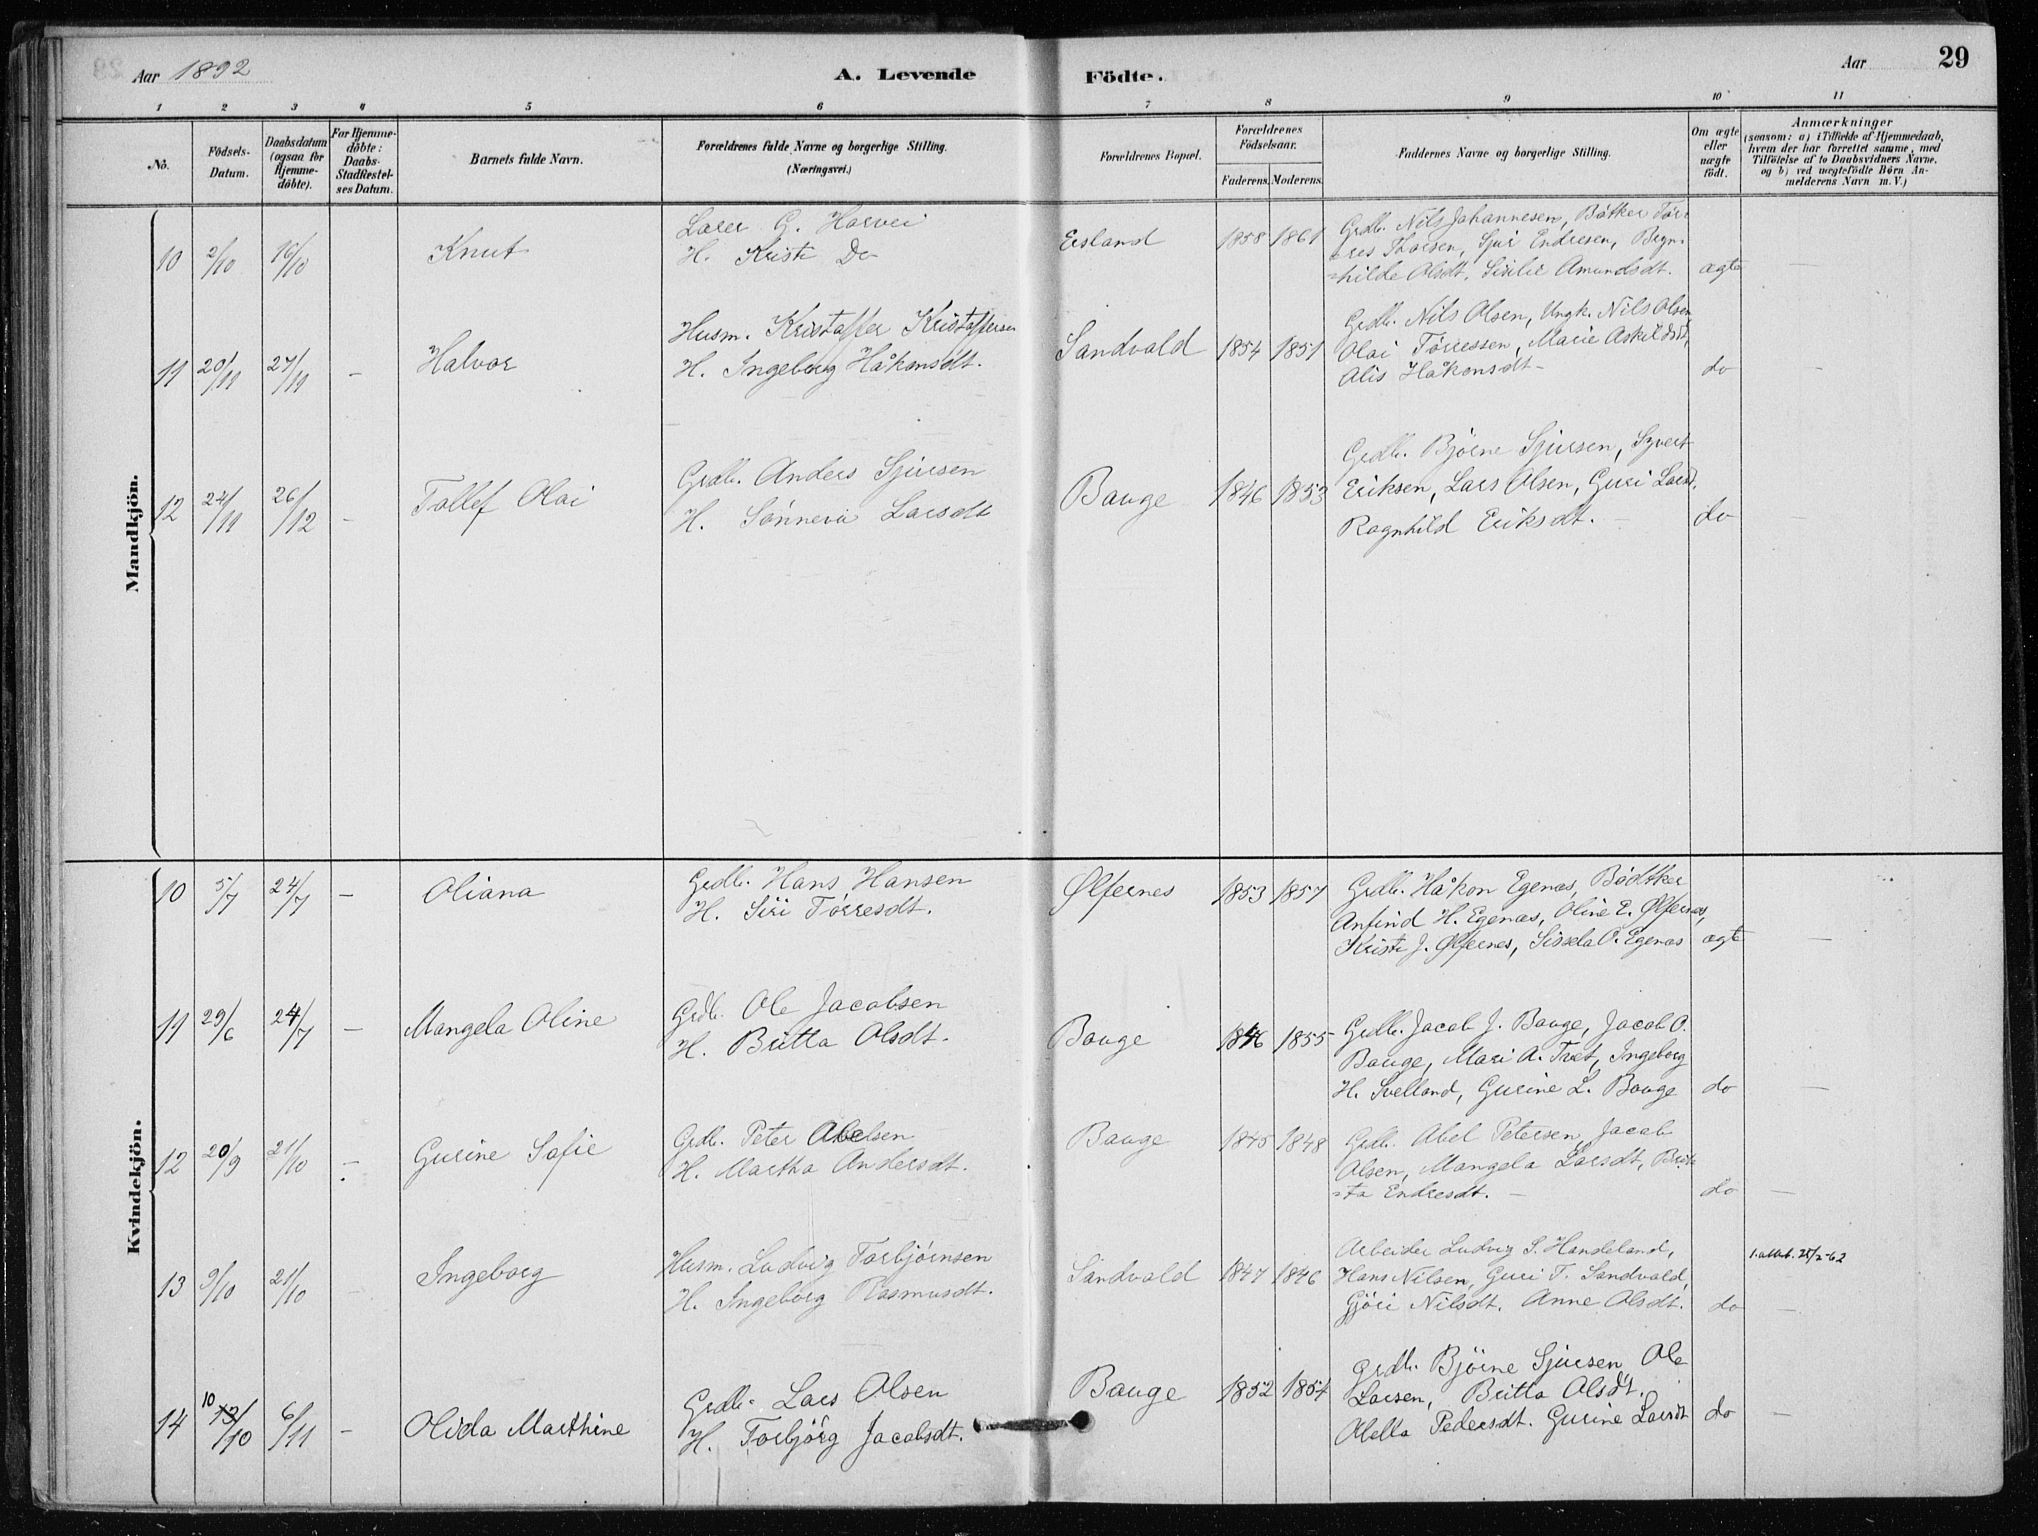 Aar 1892
A. Levende
Födte.
Aar
29
1 2 3 4 5 6 7 8 9 10 11
No.
Födsels-
Datum.
Daabsdatum
(ogsaa for
Hjemme-
döbte).
For Hjemme-
döbte:
Daabs-
Stadfæstel-
ses Datum.
Barnets fulde Navn.
Forældrenes fulde Navne og borgerlige Stilling.
(Næringsvei.)
Forældrenes Bopæl.
Forældrenes
Födselsaar.
Faderens. Moderens.
Faddernes Navne og borgerlige Stilling.
Om ægte
eller
uægte
födt.
Anmærkninger
(saasom: a) i Tilfælde af Hjemmedaab,
hvem der har forrettet samme, med
Tilföielse af to Daabsvidners Navne,
og b) ved uægtefödte Börn An-
melderens Navn m. V.)
Mandkjön.
10 2/10 16/10 Knut
Lærer G. Harvei
H. Kristi Do
Eisland 1858 1861
Grdb. Nils Johannesen, Bötker Tör-
res Thorsen, Sjur Endresen, Bryn-
hilde Olsdt. Sisilie Amundsdt. ægte —
11 20/11 27/11 – Halvor
Husm. Kristoffer Kristoffersen
H. Ingeborg Håkonsdt.
Sandvald 1854 1851
Grdb. Nils Olsen, Ungk. Nils Olsen
Olai Törressen, Marie Askildsdt,
Alis Håkonsdt – do –
12 24/11 26/12 – Tollef Olai
Grdb. Anders Sjursen
H. Sönneva Larsdt
Bauge 1846 1853
Grdb. Björne Sjursen, Syvert
Eriksen, Lars Olsen, Guri Larsd.
Ragnhild Eriksdt. – do —
Kvindekjön.
10 5/7 24/7 – Oliana
Grdb. Hans Hansen
H. Siri Törresdt.
Ølfernes 1853 1857
Grdb. Håkon Egenæs, Bödtker
Anfind H. Egenæs, Oline E. Ølfernes,
Kristi J. Ølfernes, Sissela O. Egenæs ægte —
11 29/6 24/7 – Mangela Oline
Grdb. Ole Jacobsen
H. Britta Olsdt.
Bauge 1846 1855
Grdb. Jacob J. Bauge, Jacob O.
Bauge, Mari A. Tvet, Ingeborg
H. Svelland, Gurine L. Bauge do —
12 20/9 21/10 – Gurine Sofie
Grdb. Peter Abelsen
H. Martha Andersdt.
Bauge 1845 1848
Grdb. Abel Petersen, Jacob
Olsen, Mangela Larsdt, Brit-
-ta Endresdt. – do —
13 9/10 21/10 Ingeborg
Husm. Ludvig Torbjörnsen
H. Ingeborg Rasmusdt.
Sandvald 1847 1846
Arbeider Ludvig S. Handeland,
Hans Nilsen, Guri T. Sandvald,
Gjöri Nilsdt. Anne Olsdt. do —
1. attest. 25/2-62
14 10 12/10 6/11 – Olida Marthine
Grdb. Lars Olsen
H. Torbjörg Jacobsdt.
Bauge 1852 1854
Grdb. Björne Sjursen, Ole
Larsen, Britta Olsdt.
Olella Pedersdt. Gurine Larsdt do —